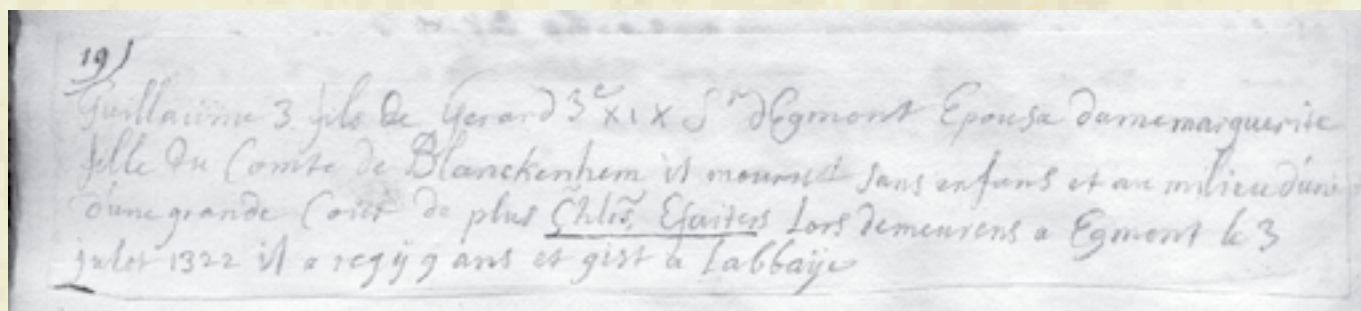 19)
Guillaume 3 fils de Gerard 3e XIX Sr dEgmont Epousa dame marguerite
fille du Comte de Blanckenhem il mourut sans enfans et au milieu d'une
d'une grande Cour de plus Lors demeurens a Egmont le 3
julet 1322 il a regÿ 9 ans et gist a Labbaÿe